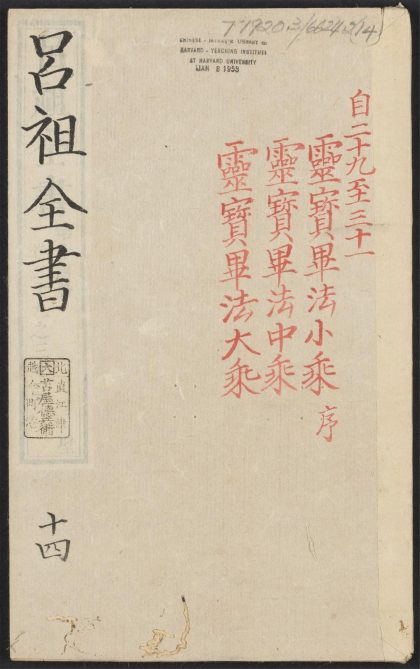 T 1920.3/6624.2(14)
CHINESE - JAPANESE LIBRARY OF
HARVARD - YENCHING INSTITUTE
AT HARVARD UNIVERSITY
JAN 8 1953
自二十九至三十一
靈寶畢法小乘 序
靈寶畢法中乘
靈寶畢法大乘
呂祖全書
十四